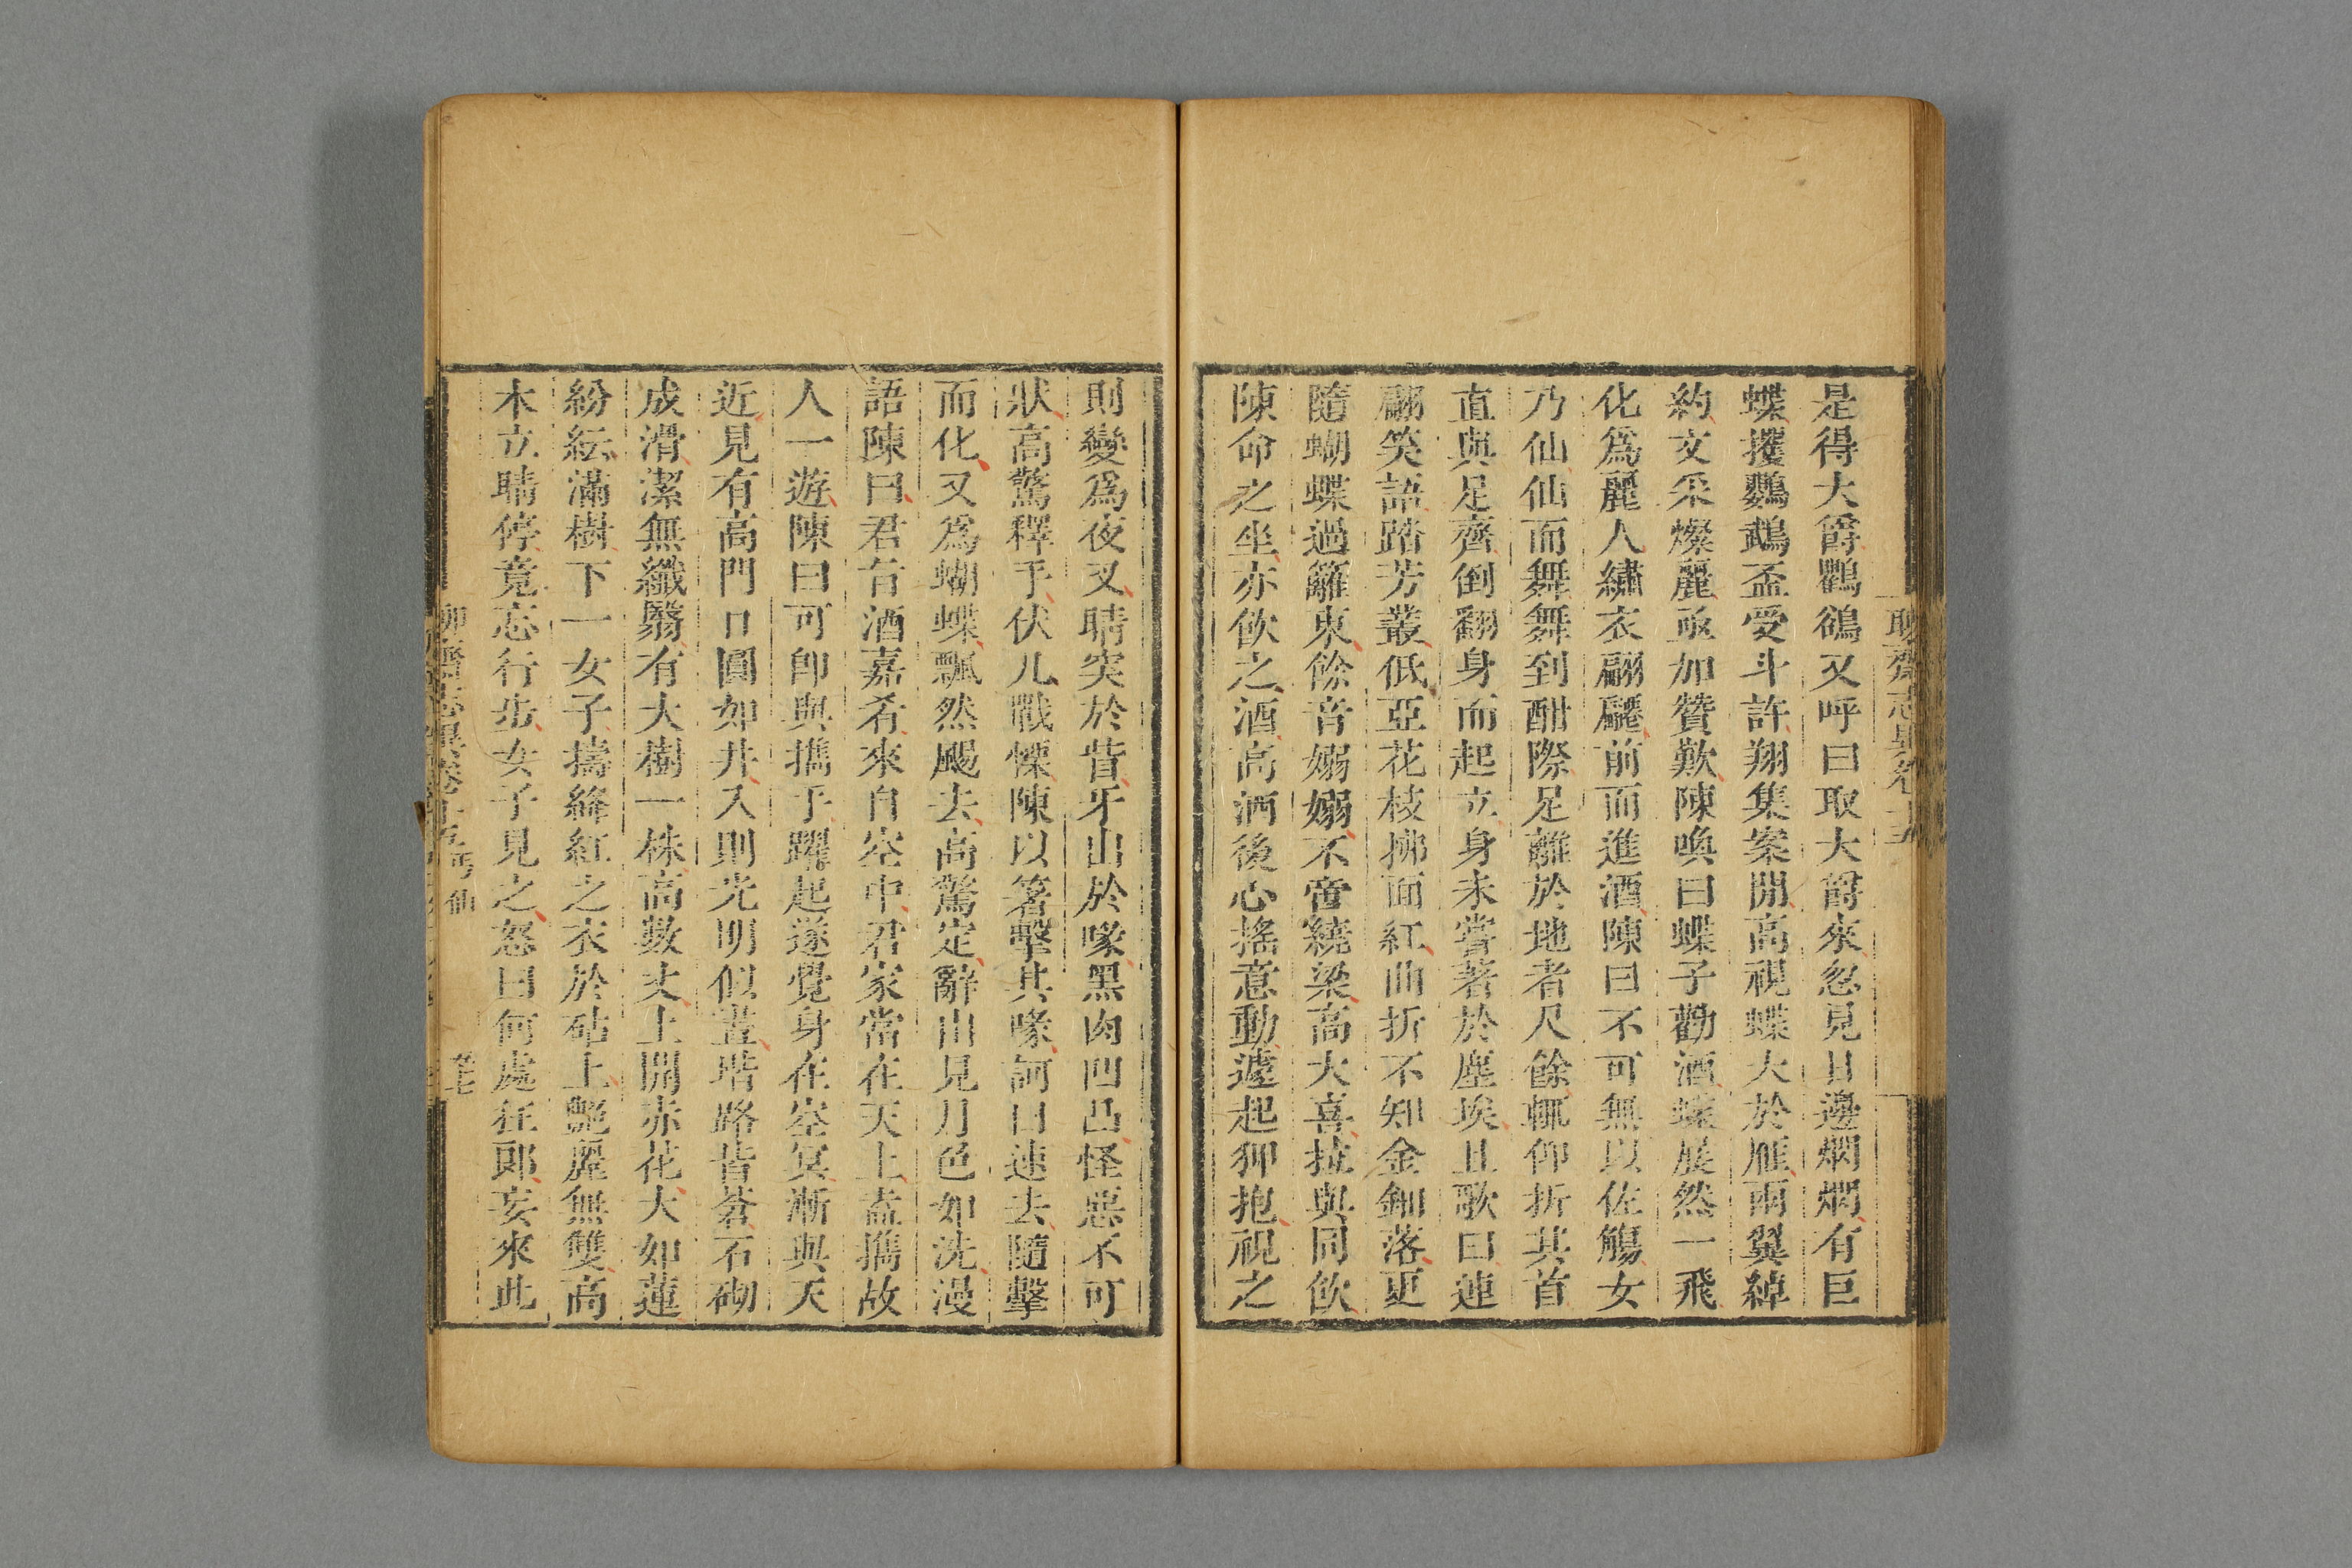 聊齋志異卷十五
是得大爵鸜鵒又呼曰取大爵來忽見日邊熌熌有巨
蝶攫鸚鵡盃受斗許翔集案間高視蝶大於雁兩翼綽
約文采燦麗亟加贊歎陳喚曰蝶子勸酒蝶展然一飛
化爲麗人繡衣翩躚前而進酒陳曰不可無以佐觴女
乃仙仙而舞舞到酣際足離於地者尺餘輒仰折其首
直與足齊倒翻身而起立身未嘗著於塵埃且歌曰連
翩笑語踏芳叢低亞花枝拂面紅曲折不知金鈿落更
隨蝴蝶過籬東餘音嫋嫋不啻繞梁高大喜拉與同飲
陳命之坐亦飲之酒高酒後心搖意動遽起狎抱視之
則變爲夜叉睛突於眥牙出於喙黑肉凹凸怪惡不可
狀高驚釋手伏几戰慄陳以箸擊其喙訶曰速去隨擊
而化又爲蝴蝶飄然颺去高驚定辭出見月色如洗漫
語陳曰君旨酒嘉肴來自空中君家當在天上盍攜故
人一遊陳曰可卽與攜手躍起遂覺身在空冥漸與天
近見有高門口圓如井入則光明似晝堦路皆蒼石砌
成滑潔無纖翳有大樹一株高數丈上開赤花大如蓮
紛紜滿樹下一女子擣絳紅之衣於砧上艷麗無雙高
木立睛停竟忘行步女子見之怒曰何處狂郎妄來此
聊齋志異卷十五 丐仙